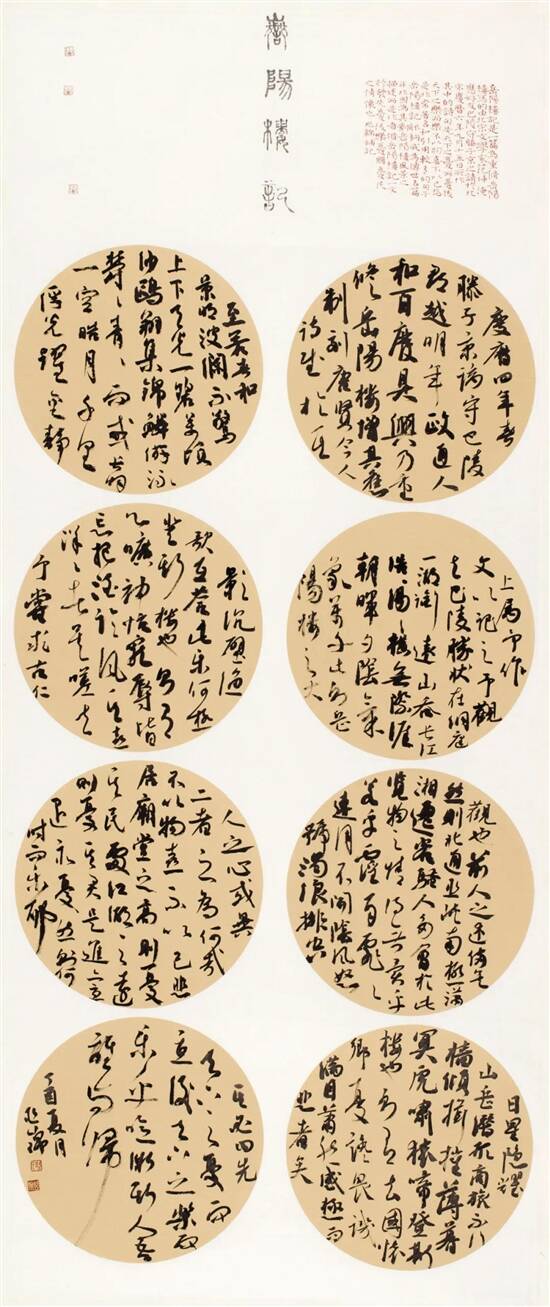 岳陽樓記
慶曆四年春
滕子京謫守巴陵
郡越明年政通人
和百廢具興乃重
修岳陽樓增其舊
制刻唐賢今人
詩賦於其
上屬予作
文以記之予觀
夫巴陵勝狀在洞庭
一湖銜遠山吞長江
浩浩湯湯橫無際涯
朝暉夕陰氣
象萬千此則岳
陽樓之大
觀也前人之述備矣
然則北通巫峽南極瀟
湘遷客騷人多會於此
覽物之情得無異乎
若夫霪雨霏霏
連月不開陰風怒
號濁浪排空
日星隱耀
山岳潛形商旅不行
檣傾楫摧薄暮
冥冥虎嘯猿啼登斯
樓也則有去國懷
鄉憂讒畏譏
滿目蕭然感極而
悲者矣
至若春和
景明波瀾不驚
上下天光一碧萬頃
沙鷗翔集錦鱗游泳
青青而或長煙
一空皓月千里
浮光躍金靜
影沉璧漁
歌互答此樂何極
登斯樓也則有
心曠神怡寵辱皆
忘把酒臨風其喜
洋洋者矣嗟夫
予嘗求古仁
人之心或異
二者之為何哉
不以物喜不以己悲
居廟堂之高則憂
其民處江湖之遠
則憂其君是進亦憂
退亦憂然則何
時而樂耶
其必曰先
天下之憂而
憂後天下之樂而
樂乎噫微斯人吾
誰與歸
丁酉夏月